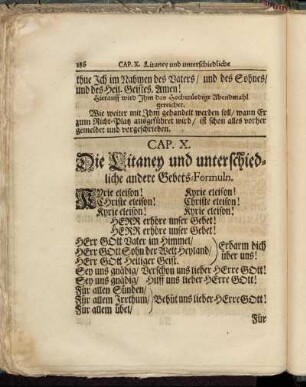 186 CAP. X. Litaney und unterschiedliche
thue Ich im Nahmen des Vaters / und des Sohnes /
und des Heil. Geistes. Amen!
Hierauff wird Ihm das Hochwürdige Abendmahl
gereichet.
Wie weiter mit Ihm gehandelt werden soll / wann Er
zum Richt-Platz ausgeführet wird / ist schon alles vorhero
gemeldet und vorgeschrieben.
CAP. X.
Die Litaney und unterschied-
liche andere Gebets-Formuln.
KYrie eleison! Kyrie eleison!
Christe eleison! Christe eleison!
Kyrie eleison! Kyrie eleison!
HERR erhöre unser Gebet!
HERR erhöre unser Gebet!
HErr GOtt Vater im Himmel /
HErr GOtt Sohn der Welt Heyland / Erbarm dich
HErr GOtt Heiliger Geist. über uns!
Sey uns gnädig / Verschon uns lieber HErre GOtt!
Sey uns gnädig / Hilff uns lieber HErre GOtt!
Für allen Sünden /
Für allem Irrthum / Behüt uns lieber HErre GOtt!
Für allem übel /
Für